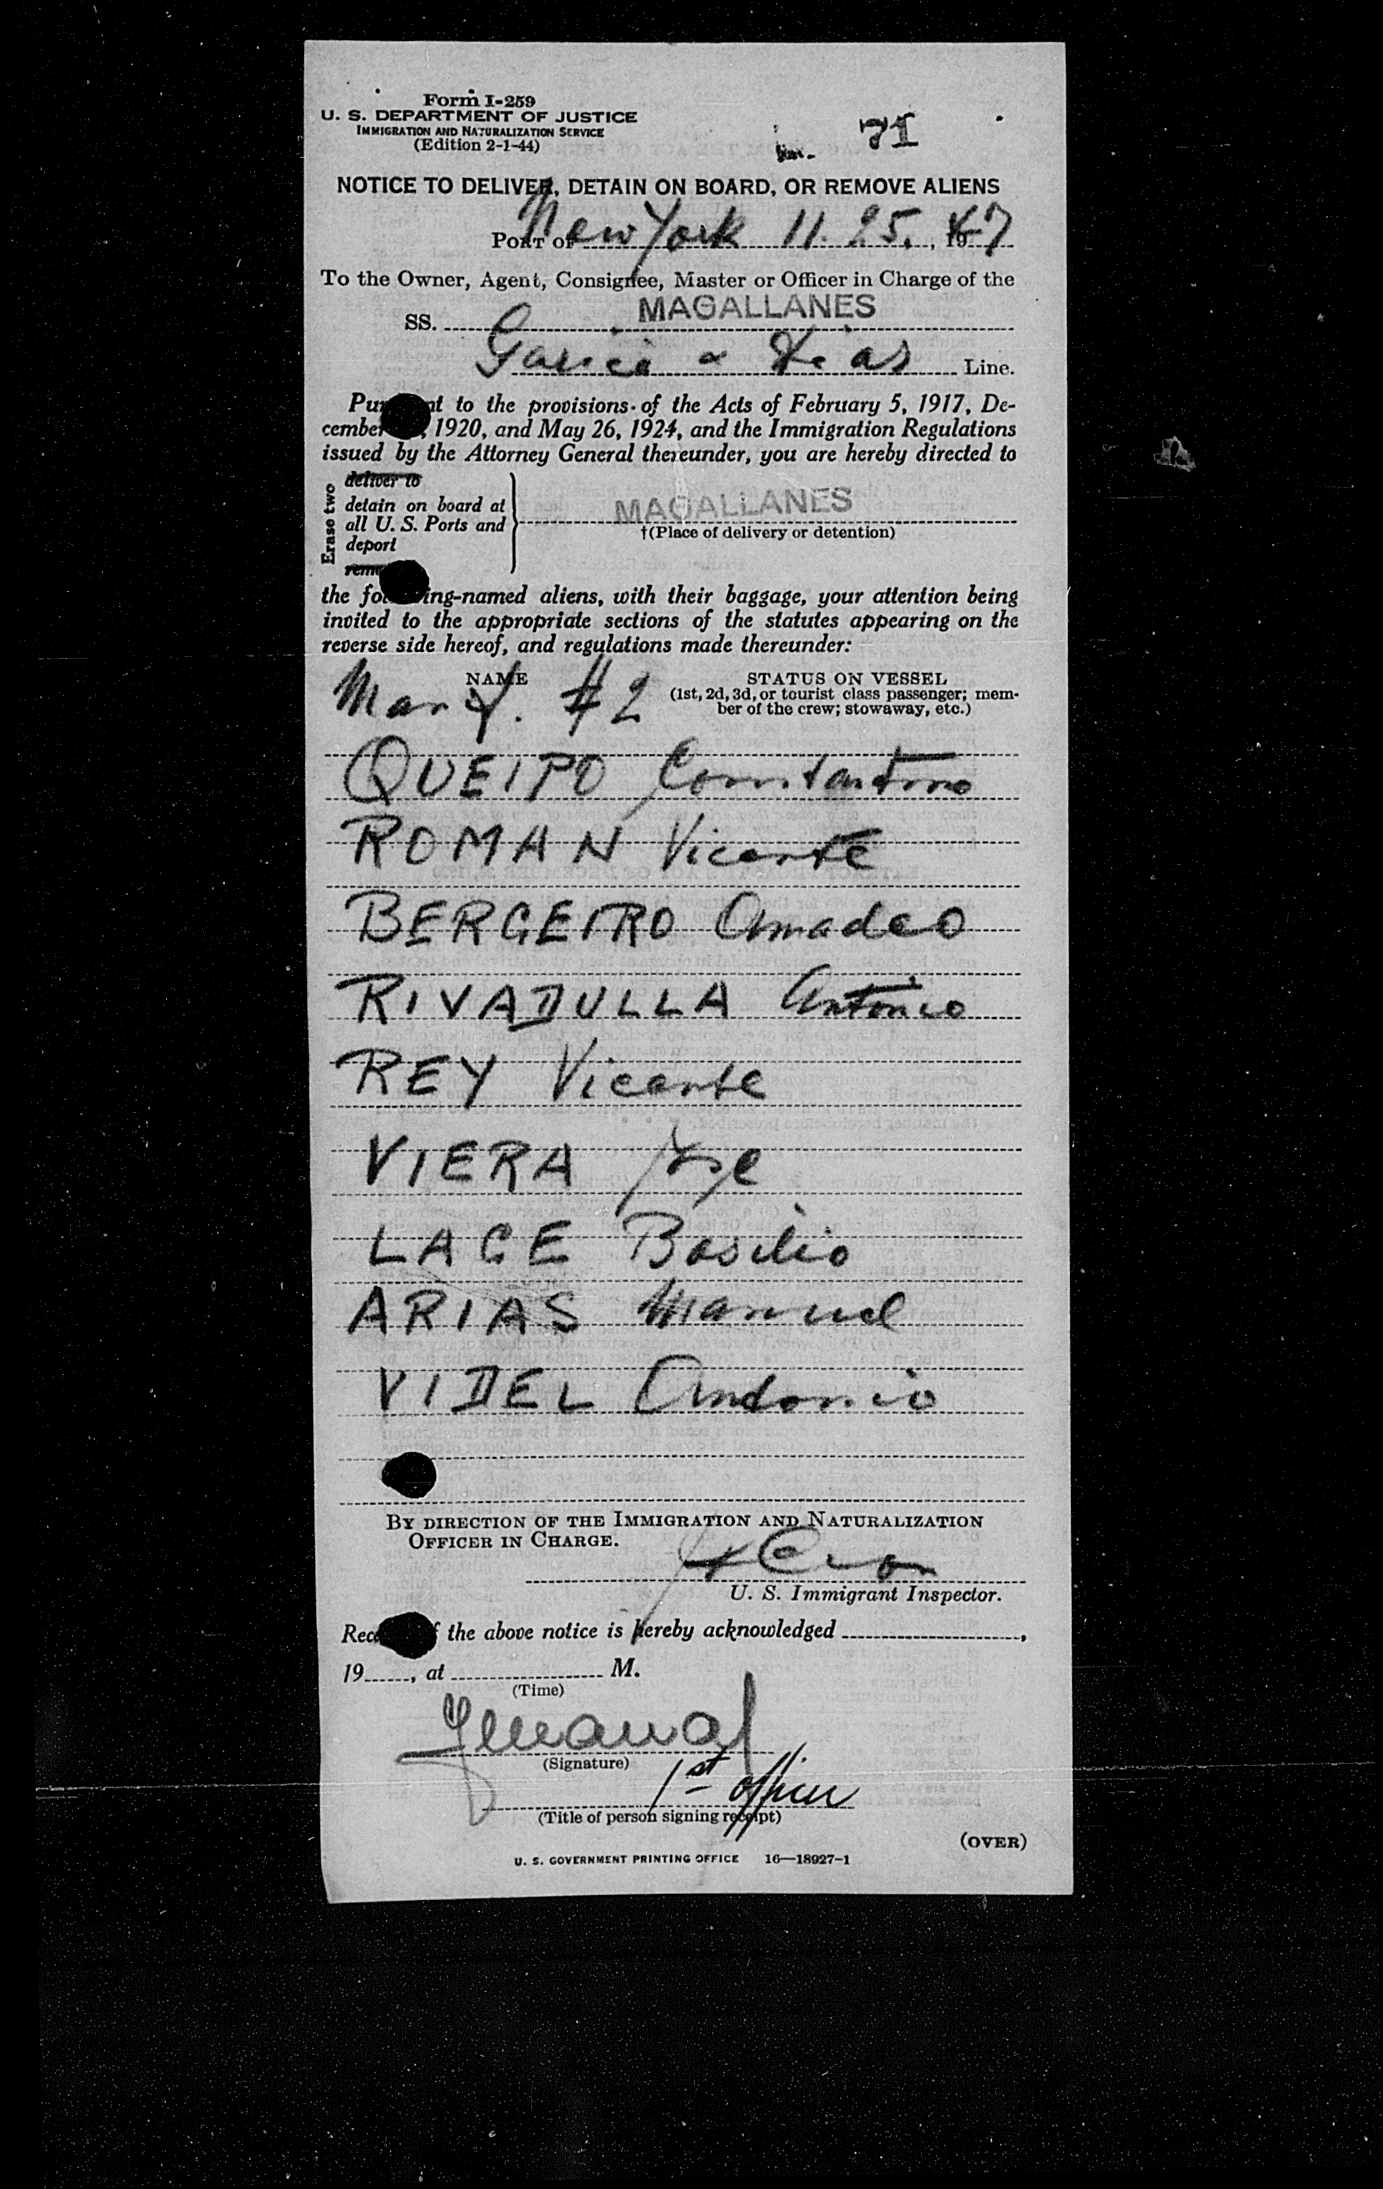 Form I-259
U. S. DEPARTMENT OF JUSTICE
IMMIGRATION AND NATURALIZATION SERVICE
(Edition 2-1-44)
71
NOTICE TO DELIVER, DETAIN ON BOARD, OR REMOVE ALIENS
PORT OF New York 11. 25., 1947
To the Owner, Agent, Consignee, Master or Officer in Charge of the
SS. MAGALLANES
Garcia & Dias Line.
to the provisions of the Acts of February 5, 1917, De-
cember 1920, and May 26, 1924, and the Immigration Regulations
issued by the Attorney General thereunder, you are hereby directed to
Erase two
deliver to
detain on board at
all U. S. Ports and
deport
MAGALLANES
†(Place of delivery or detention)
the following-named aliens, with their baggage, your attention being
invited to the appropriate sections of the statutes appearing on the
reverse side hereof, and regulations made thereunder:
NAME STATUS ON VESSEL
(1st, 2d, 3d, or tourist class passenger; mem-
ber of the crew; stowaway, etc.)
#2
QUEIPO Constantino
ROMAN Vicente
BERGEIRO Amadeo
RIVADULLA Antonio
REY Vicente
VIERA Jose
LAGE Basilio
ARIAS Manuel
VIDEL Antonio
BY DIRECTION OF THE IMMIGRATION AND NATURALIZATION
OFFICER IN CHARGE.
U. S. Immigrant Inspector.
the above notice is hereby acknowledged ,
19 , at M.
(Time)
(Signature)
1st officer
(Title of person signing receipt)
(OVER)
U. S. GOVERNMENT PRINTING OFFICE 16—18927-1